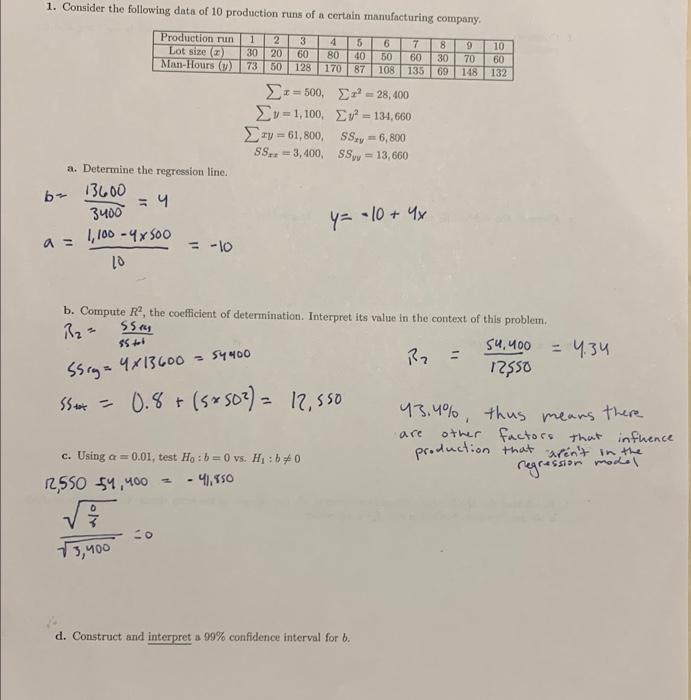 1. Consider the following data of 10 production runs of a certain manufacturing company.
Production run 1 2 3 4 5 6 7 8 9 10
Lot size (x) 30 20 60 80 40 50 60 30 70 60
Man-Hours (y) 73 50 128 170 87 108 135 69 148 132
∑x = 500, ∑x² = 28,400
∑y = 1,100, ∑y² = 134,660
∑xy = 61,800, SSxy = 6,800
SSxx = 3,400, SSyy = 13,660
a. Determine the regression line.
b = 13600/3400 = 4
y = -10 + 4x
a = 1,100 - 4x500/10 = -10
b. Compute R², the coefficient of determination. Interpret its value in the context of this problem.
R2 = SSreg/SStot
SSrg = 4x13600 = 54400
R2 = 54,400/12,550 = 4.34
SStot = 0.8 + (5x50²) = 12,550
43.4%, thus means there
are other factors that influence
production that aren't in the
regression model
c. Using α = 0.01, test H₀ : b = 0 vs. H₁ : b ≠ 0
12,550 54,400 = -41,850
√0/8/√3,400 = 0
d. Construct and interpret a 99% confidence interval for b.